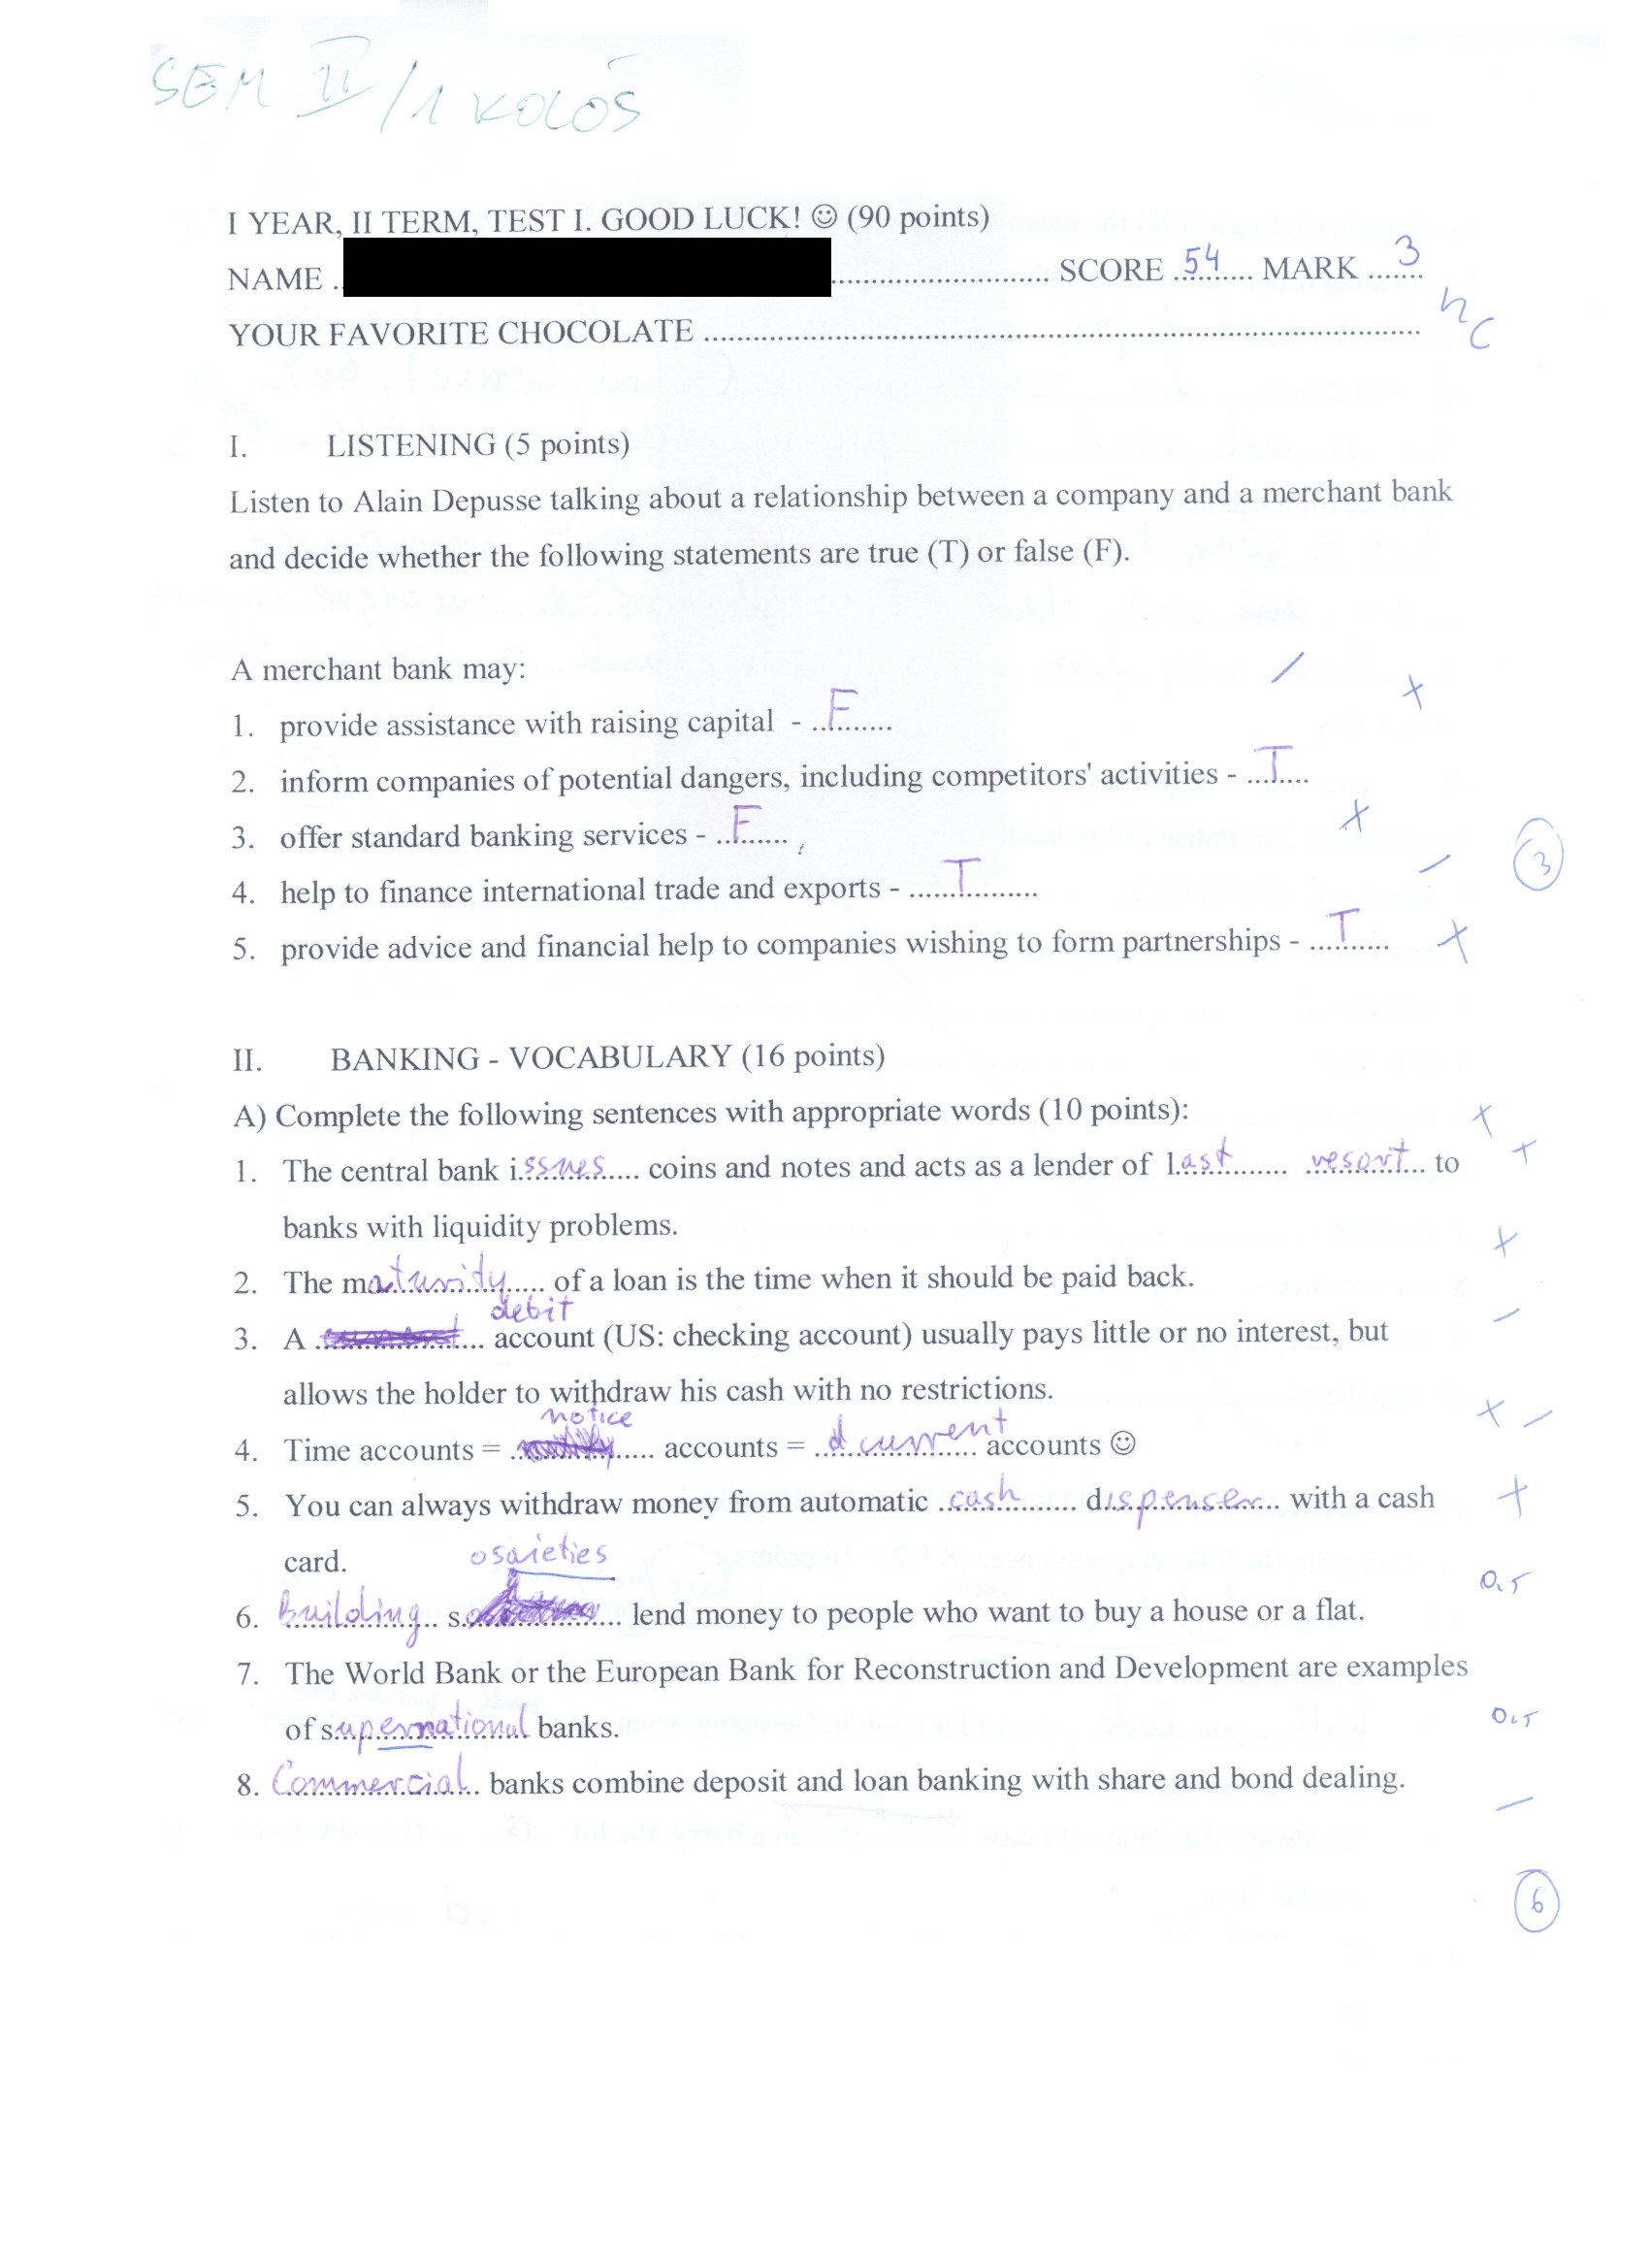 SEM II / 1 KOLOS
I YEAR, II TERM, TEST I. GOOD LUCK! ☺ (90 points)
NAME .. .......................... SCORE ..54.... MARK ..3....
nc
YOUR FAVORITE CHOCOLATE ..........................................................................................
I. LISTENING (5 points)
Listen to Alain Depusse talking about a relationship between a company and a merchant bank
and decide whether the following statements are true (T) or false (F).
A merchant bank may: /
1. provide assistance with raising capital - ..F........ +
2. inform companies of potential dangers, including competitors' activities - ...T....
3. offer standard banking services - ..F....... +
4. help to finance international trade and exports - ......T.......... – 3
5. provide advice and financial help to companies wishing to form partnerships - ...T....... +
II. BANKING - VOCABULARY (16 points)
A) Complete the following sentences with appropriate words (10 points): +
1. The central bank i.ssues.... coins and notes and acts as a lender of l.ast....... ..resort... to +
banks with liquidity problems. +
2. The maturity..... of a loan is the time when it should be paid back.
debit –
3. A .................... account (US: checking account) usually pays little or no interest, but
allows the holder to withdraw his cash with no restrictions.
notice + –
4. Time accounts = ................. accounts = ..d current..... accounts ☺
5. You can always withdraw money from automatic ..cash....... dispenser... with a cash +
card. osaieties
0.5
6. Building.. s.................... lend money to people who want to buy a house or a flat.
7. The World Bank or the European Bank for Reconstruction and Development are examples
of supernational banks. 0.5
8. Commercial.. banks combine deposit and loan banking with share and bond dealing. –
6